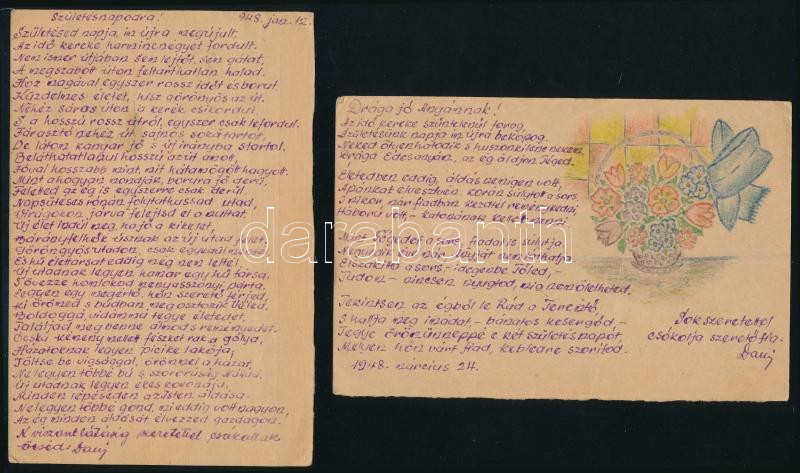 Születésnapodra!
948. jan. 12.
Születésed napja, im újra megújult,
Az idő kereke harmincnégyet fordult.
Nem ismer útjában sem lejtőt, sem gátat,
A megszabott úton feltarthatlan halad.
Hoz magával egyszer rossz időt és borut.
Küzdelmes életet, hisz göröngyös az út.
Nehéz sáros úton a kerék csikordul,
S a hosszú rossz útról, egyszer csak lefordul.
Fárasztó nehéz út sajnos soká tartott,
De láton kanyar jő s új irányba startol.
Beláthatatlanul hosszú az út amott,
Jóval hosszabb mint, mit hátamögött hagyott.
Mint ahogyan mondják, borura jő derű,
Feletted az ég is egyszerre csak derül.
Napsütéses rónán folytathassad utad,
Virágokon járva felejtsd el a multat.
Új élet indul meg, hajó a kikelet,
Bárányfelhők úsznak az új utad felett,
Göröngyös utadon, csak egyedül mentél
És hű élettársat eddig még nem leltél.
Új utadnak legyen hamar egy hű társa,
S övezze homlokod menyasszonyi párta.
Legyen egy megértő, hőn szerető férjed,
Ki örömöd s búdban megosztozik véled.
Boldoggá, vidámmá tegye életedet,
Találjad meg benne álmod s reményedet.
Cocka kémény mellett fészket rak a gólya,
Házatoknak legyen picike lakója,
Töltse be vígsággal, örömmel a házat,
Ne legyen többé bú s szomorúság nálad.
Új utadnak legyen ékes koronája,
Minden lépéseden az Isten áldása.
Ne legyen többé gond, mi eddig volt nagyon,
Az ég minden áldását élvezzed gazdagon.
A viszontlátásig szeretettel csókollak
öcséd: Dani
Drága jó Anyánnak!
Az idő kereke szüntelenül forog
Születésünk napja im újra bekopog.
Neked ötvenhatodik s huszonkilenc nekem,
Drága Édesanyám, az ég áldjon Téged!
Életedben eddig, áldás nem igen volt,
Apánkat elvesztvén korán sújtott a sors,
S mikor már fiadban kezdtél reménykedni,
Háború volt, - katonának kellett menni
Most Tégedet a sors, fiadat is sújtja
Elszakíta a sors - idegenbe Tőled, -
Tudom - nincsen nyugtod, míg nem ölelheted.
Tekintsen az égből le Rád a Teremtő,
S hallja meg imádat, - bánatos kesergőd, -
Tegye örömünneppé e két születésnapot,
Melyen hőn várt fiad, kebledre szorítod.
1948. március 24.
Sok szeretettel
csókolja szerető fia.
Dani
darabanth